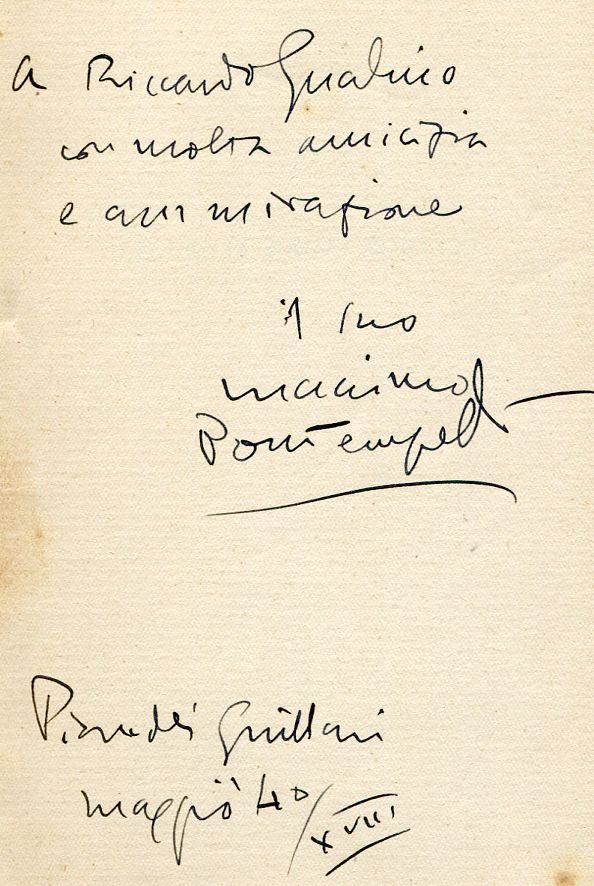 A Riccardo Gualino
con molta amicizia
e ammirazione
il suo
massimo
Bontempelli
Pian dei Giullari
maggio 40/XVIII